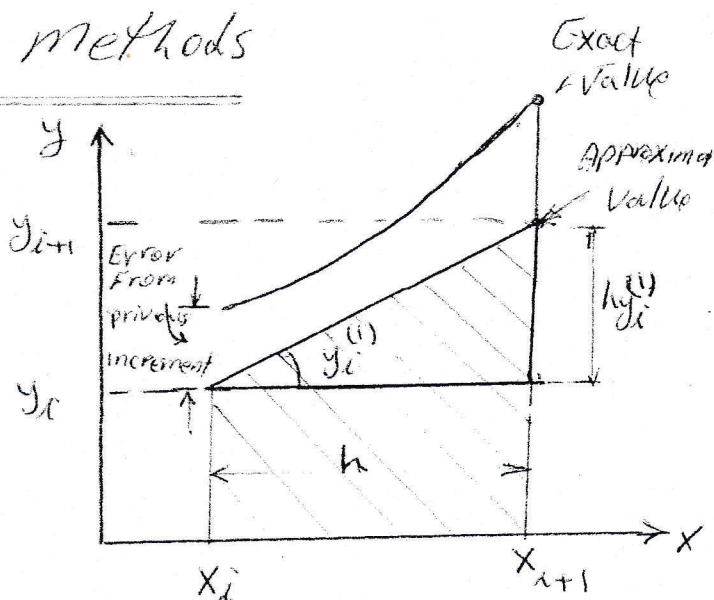 methods
Exact
Value
y
Approximat
Value
y_{i+1}
Error
From
privous
increment
y_i^{(i)}
hy_i^{(i)}
y_i
h
x
x_i
x_{i+1}